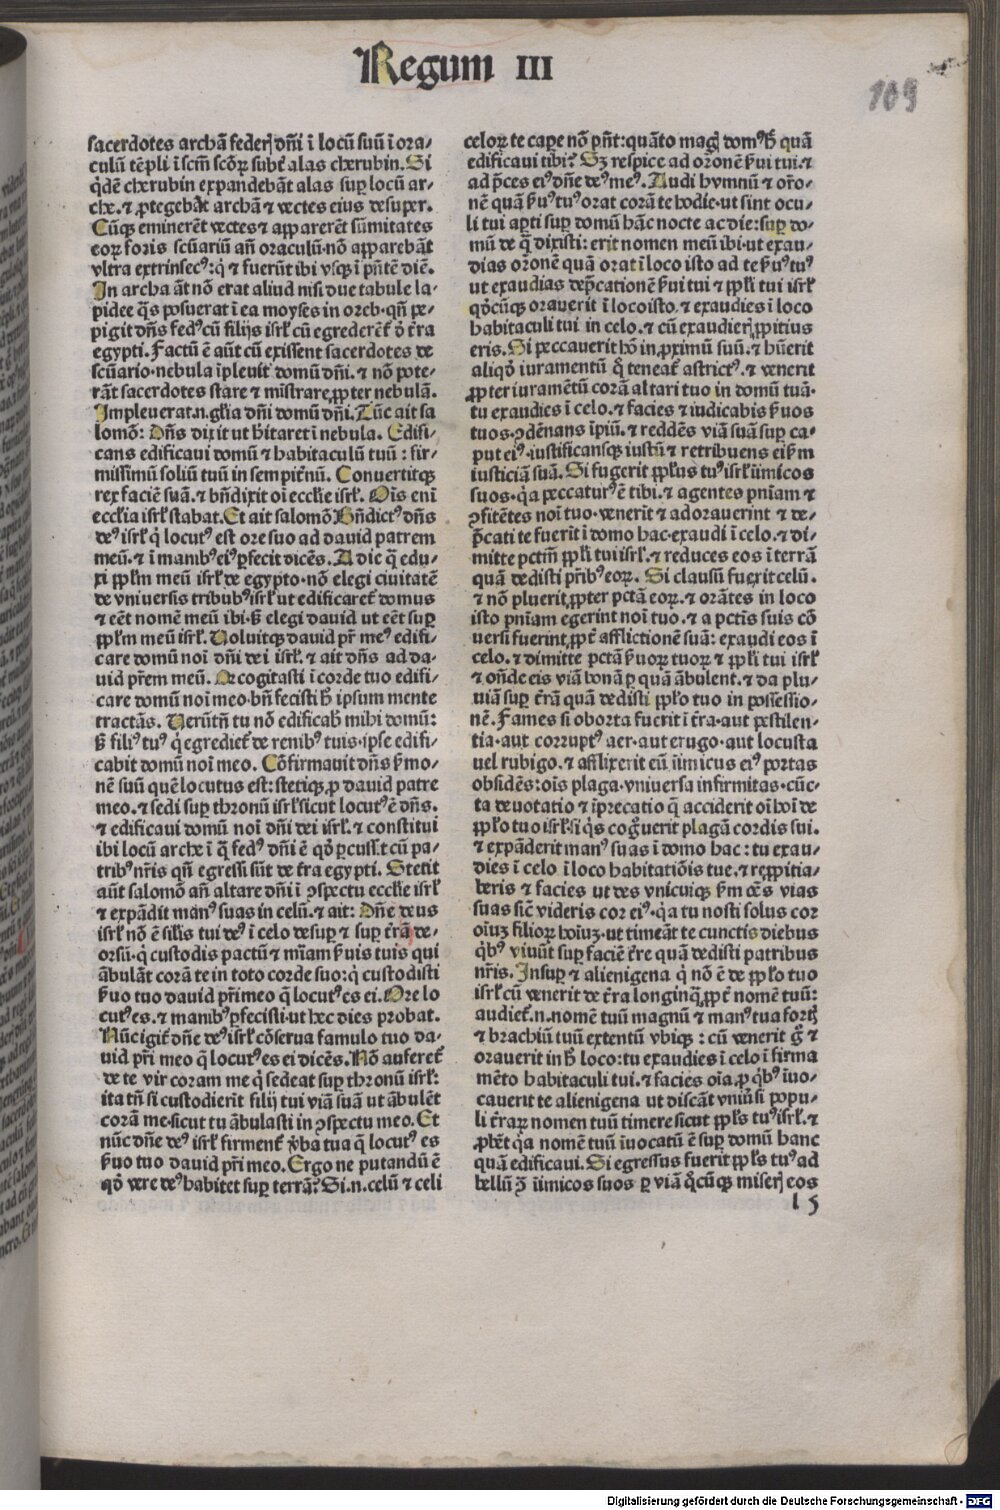 Regum III
109
sacerdotes archã federꝭ dñi ĩ locũ suũ ĩ ora⸗
culũ tẽpli ĩ scm̃ scõꝝ subt̉ alas cherubin. Si
q̇dẽ cherubin expandebãt alas suꝑ locũ ar⸗
che. ⁊ ꝓtegebãt archã ⁊ vectes eius desuper.
Cũqꝫ eminerẽt vectes ⁊ apparerẽt sũmitates
eoꝝ foris scũariũ añ oraculũ. nõ apparebãt
vltra extrinsecꝰ: q̇ ⁊ fuerũt ibi vsqꝫ ĩ pñtẽ diẽ.
In archa ãt nõ erat aliud nisi due tabule la⸗
pidee q̃s posuerat ĩ ea moyses in oreb. qñ pe⸗
pigit dñs fedꝰ cũ filijs isrł cũ egrederẽt̉ ð t̃ra
egypti. Factũ ẽ aũt cũ exissent sacerdotes de
scũario. nebula ĩpleuit domũ dñi. ⁊ nõ pote⸗
rãt sacerdotes stare ⁊ mĩstrare ꝓpter nebulã.
Impleuerat .n. gĺia dñi domũ dñi. Tũc ait sa
lomõ: Dñs dixit ut h̃itaret ĩ nebula. Edifi⸗
cans edificaui domũ ⁊ habitaculũ tuũ: fir⸗
missimũ soliũ tuũ in sempit̉nũ. Conuertitqꝫ
rex faciẽ suã. ⁊ bñdixit oĩ eccĺie isrł. Oĩs enĩ
eccĺia isrł stabat. Et ait salomõ Bñdictꝰ dñs
deꝰ isrł q̇ locutꝰ est ore suo ad dauid patrem
meũ. ⁊ ĩ manibꝰ eiꝰ ꝑfecit dicẽs. A die q̃ edu⸗
xi ppłm meũ isrł de egypto. nõ elegi ciuitatẽ
de vniuersis tribubꝰ isrł ut edificaret̉ domus
⁊ eẽt nomẽ meũ ibi. s̃ elegi dauid ut eẽt suꝑ
ppłm meũ isrł. Voluitqꝫ dauid pr̃ meꝰ edifi⸗
care domũ noĩ dñi dei isrł. ⁊ ait dñs ad da⸗
uid pr̃em meũ. Qꝛ cogitasti ĩ corde tuo edifi⸗
care domũ noĩ meo. bñ fecisti h̃ ipsum mente
tractãs. Verũtñ tu nõ edificab̃ mihi domũ:
s̃ filiꝰ tuꝰ q̇ egrediet̉ de renibꝰ tuis. ipse edifi⸗
cabit domũ noĩ meo. Cõfirmauit dñs ẜmo⸗
nẽ suũ quẽ locutus est: stetiqꝫ ꝓ dauid patre
meo. ⁊ sedi suꝑ thronũ isrł sicut locutꝰ ẽ dñs.
⁊ edificaui domũ noĩ dñi dei isrł. ⁊ constitui
ibi locũ arche ĩ q̃ fedꝰ dñi ẽ qð ꝑcuss.t cũ pa⸗
tribꝰ nr̃is qñ egressi sũt de t̃ra egypti. Stetit
aũt salomõ añ altare dñi ĩ ꝯspectu eccĺie isrł
⁊ expãdit manꝰ suas in celũ. ⁊ ait: Dñe deus
isrł nõ ẽ silis̃ tui deꝰ ĩ celo desuꝑ ⁊ suꝑ t̃rã de⸗
orsũ. q̇ custodis pactũ ⁊ mĩam ẜuis tuis qui
ãbulãt corã te in toto corde suo: q̇ custodisti
ẜuo tuo dauid pr̃i meo q̃ locutꝰ es ei. Ore lo
cutꝰ es. ⁊ manibꝰ ꝑfecisti. ut hec dies probat.
Nũc igit̉ dñe deꝰ isrł cõserua famulo tuo da⸗
uid pr̃i meo q̃ locutꝰ es ei dicẽs. Nõ auferet̉
de te vir coram me q̇ sedeat suꝑ thronũ isrł:
ita tñ si custodierĩt filij tui viã suã ut ãbulẽt
corã me. sicut tu ãbulasti in ꝯspectu meo. Et
nũc dñe deꝰ isrł firment̉ v̉ba tua q̃ locutꝰ es
ẜuo tuo dauid pr̃i meo. Ergo ne putandũ ẽ
qð vere deꝰ habitet suꝑ terrã? Si .n. celũ ⁊ celi
celoꝝ te cape nõ pñt: quãto magꝭ domꝰ h̃ quã
edificaui tibi? Sꝫ respice ad or̃onẽ ẜui tui. ⁊
ad p̃ces eiꝰ dñe deꝰ meꝰ. Audi hymnũ ⁊ or̃o⸗
nẽ quã ẜuꝰ tuꝰ orat corã te hodie. ut sint ocu⸗
li tui aꝑti suꝑ domũ hãc nocte ac die: suꝑ do⸗
mũ de q̃ dixisti: erit nomen meũ ibi. ut exau⸗
dias or̃onẽ quã orat ĩ loco isto ad te ẜuꝰ tuꝰ
ut exaudias dep̃cationẽ ẜui tui ⁊ ppłi tui isrł
qð̃cũqꝫ orauerit ĩ loco isto. ⁊ exaudies ĩ loco
habitaculi tui in celo. ⁊ cũ exaudierꝭ ꝓpitius
eris. Si peccauerit hõ in ꝓximũ suũ. ⁊ h̃uerit
aliqð iuramentũ q̇ teneat̉ astrictꝰ. ⁊ venerit
ꝓpter iuramẽtũ corã altari tuo in domũ tuã.
tu exaudies ĩ celo. ⁊ facies ⁊ iudicabis ẜuos
tuos. ꝯdẽnans ĩpiũ. ⁊ reddẽs viã suã suꝑ ca⸗
put eiꝰ. iustificansqꝫ iustũ ⁊ retribuens ei ẜm
iusticiã suã. Si fugerit ppłus tuꝰ isrł ĩimicos
suos. q̇a peccaturꝰ ẽ tibi. ⁊ agentes pnĩam ⁊
ꝯfitẽtes noĩ tuo. venerĩt ⁊ adorauerint ⁊ de⸗
p̃cati te fuerĩt ĩ domo hac. exaudi ĩ celo. ⁊ di⸗
mitte pctm̃ ppłi tui isrł. ⁊ reduces eos ĩ terrã
quã dedisti pr̃ibꝰ eoꝝ. Si clausũ fuerit celũ.
⁊ nõ pluerit ꝓpter pctã eoꝝ. ⁊ orãtes in loco
isto pnĩam egerint noĩ tuo. ⁊ a pctĩs suis cõ
uersi fuerint ꝓpt̉ afflictionẽ suã: exaudi eos ĩ
celo. ⁊ dimitte pctã ẜuoꝝ tuoꝝ ⁊ ppłi tui isrł
⁊ oñde eis viã bonã ꝑ quã ãbulent. ⁊ da plu⸗
uiã suꝑ t̃rã quã dedisti ppło tuo in possessio⸗
nẽ. Fames si oborta fuerit ĩ t̃ra. aut pestilen⸗
tia. aut corruptꝰ aer. aut erugo. aut locusta
uel rubigo. ⁊ afflixerit eũ ĩimicus eiꝰ portas
obsidẽs: oĩs plaga. vniuersa infirmitas. cũc⸗
ta deuotatio ⁊ ĩprecatio q̃ acciderit oĩ hoĩ de
ppło tuo isrł. si q̇s cog̃uerit plagã cordis sui.
⁊ expãderit manꝰ suas ĩ domo hac: tu exau⸗
dies ĩ celo ĩ loco habitatiõis tue. ⁊ reꝓpitia⸗
beris ⁊ facies ut des vnicuiqꝫ ẜm oẽs vias
suas sic̃ videris cor eiꝰ. q̇a tu nosti solus cor
oĩuꝫ filioꝝ hoĩuꝫ. ut timeãt te cunctis diebus
q̇bꝰ viuũt suꝑ faciẽ t̃re quã dedisti patribus
nr̃is. Insuꝑ ⁊ alienigena q̇ nõ ẽ de ppło tuo
isrł cũ venerit de t̃ra longinq̃ ꝓpt̉ nomẽ tuũ:
audiet̉ .n. nomẽ tuũ magnũ ⁊ manꝰ tua fortꝭ
⁊ brachiũ tuũ extentũ vbiqꝫ: cũ venerit g̃ ⁊
orauerit in h̃ loco: tu exaudies ĩ celo ĩ firma
mẽto habitaculi tui. ⁊ facies oĩa ꝓ q̇bꝰ ĩuo⸗
cauerit te alienigena ut discãt vniũsi popu⸗
li t̃raꝝ nomen tuũ timere sicut ppłs tuꝰ isrł. ⁊
ꝓbẽt q̇a nomẽ tuũ ĩuocatũ ẽ suꝑ domũ hanc
quã edificaui. Si egressus fuerit ppłs tuꝰ ad
bellũ ꝯ̃ ĩimicos suos ꝑ viã q̃cũqꝫ miserꝭ eos
l 5
Digitalisierung gefördert durch die Deutsche Forschungsgemeinschaft - DFG